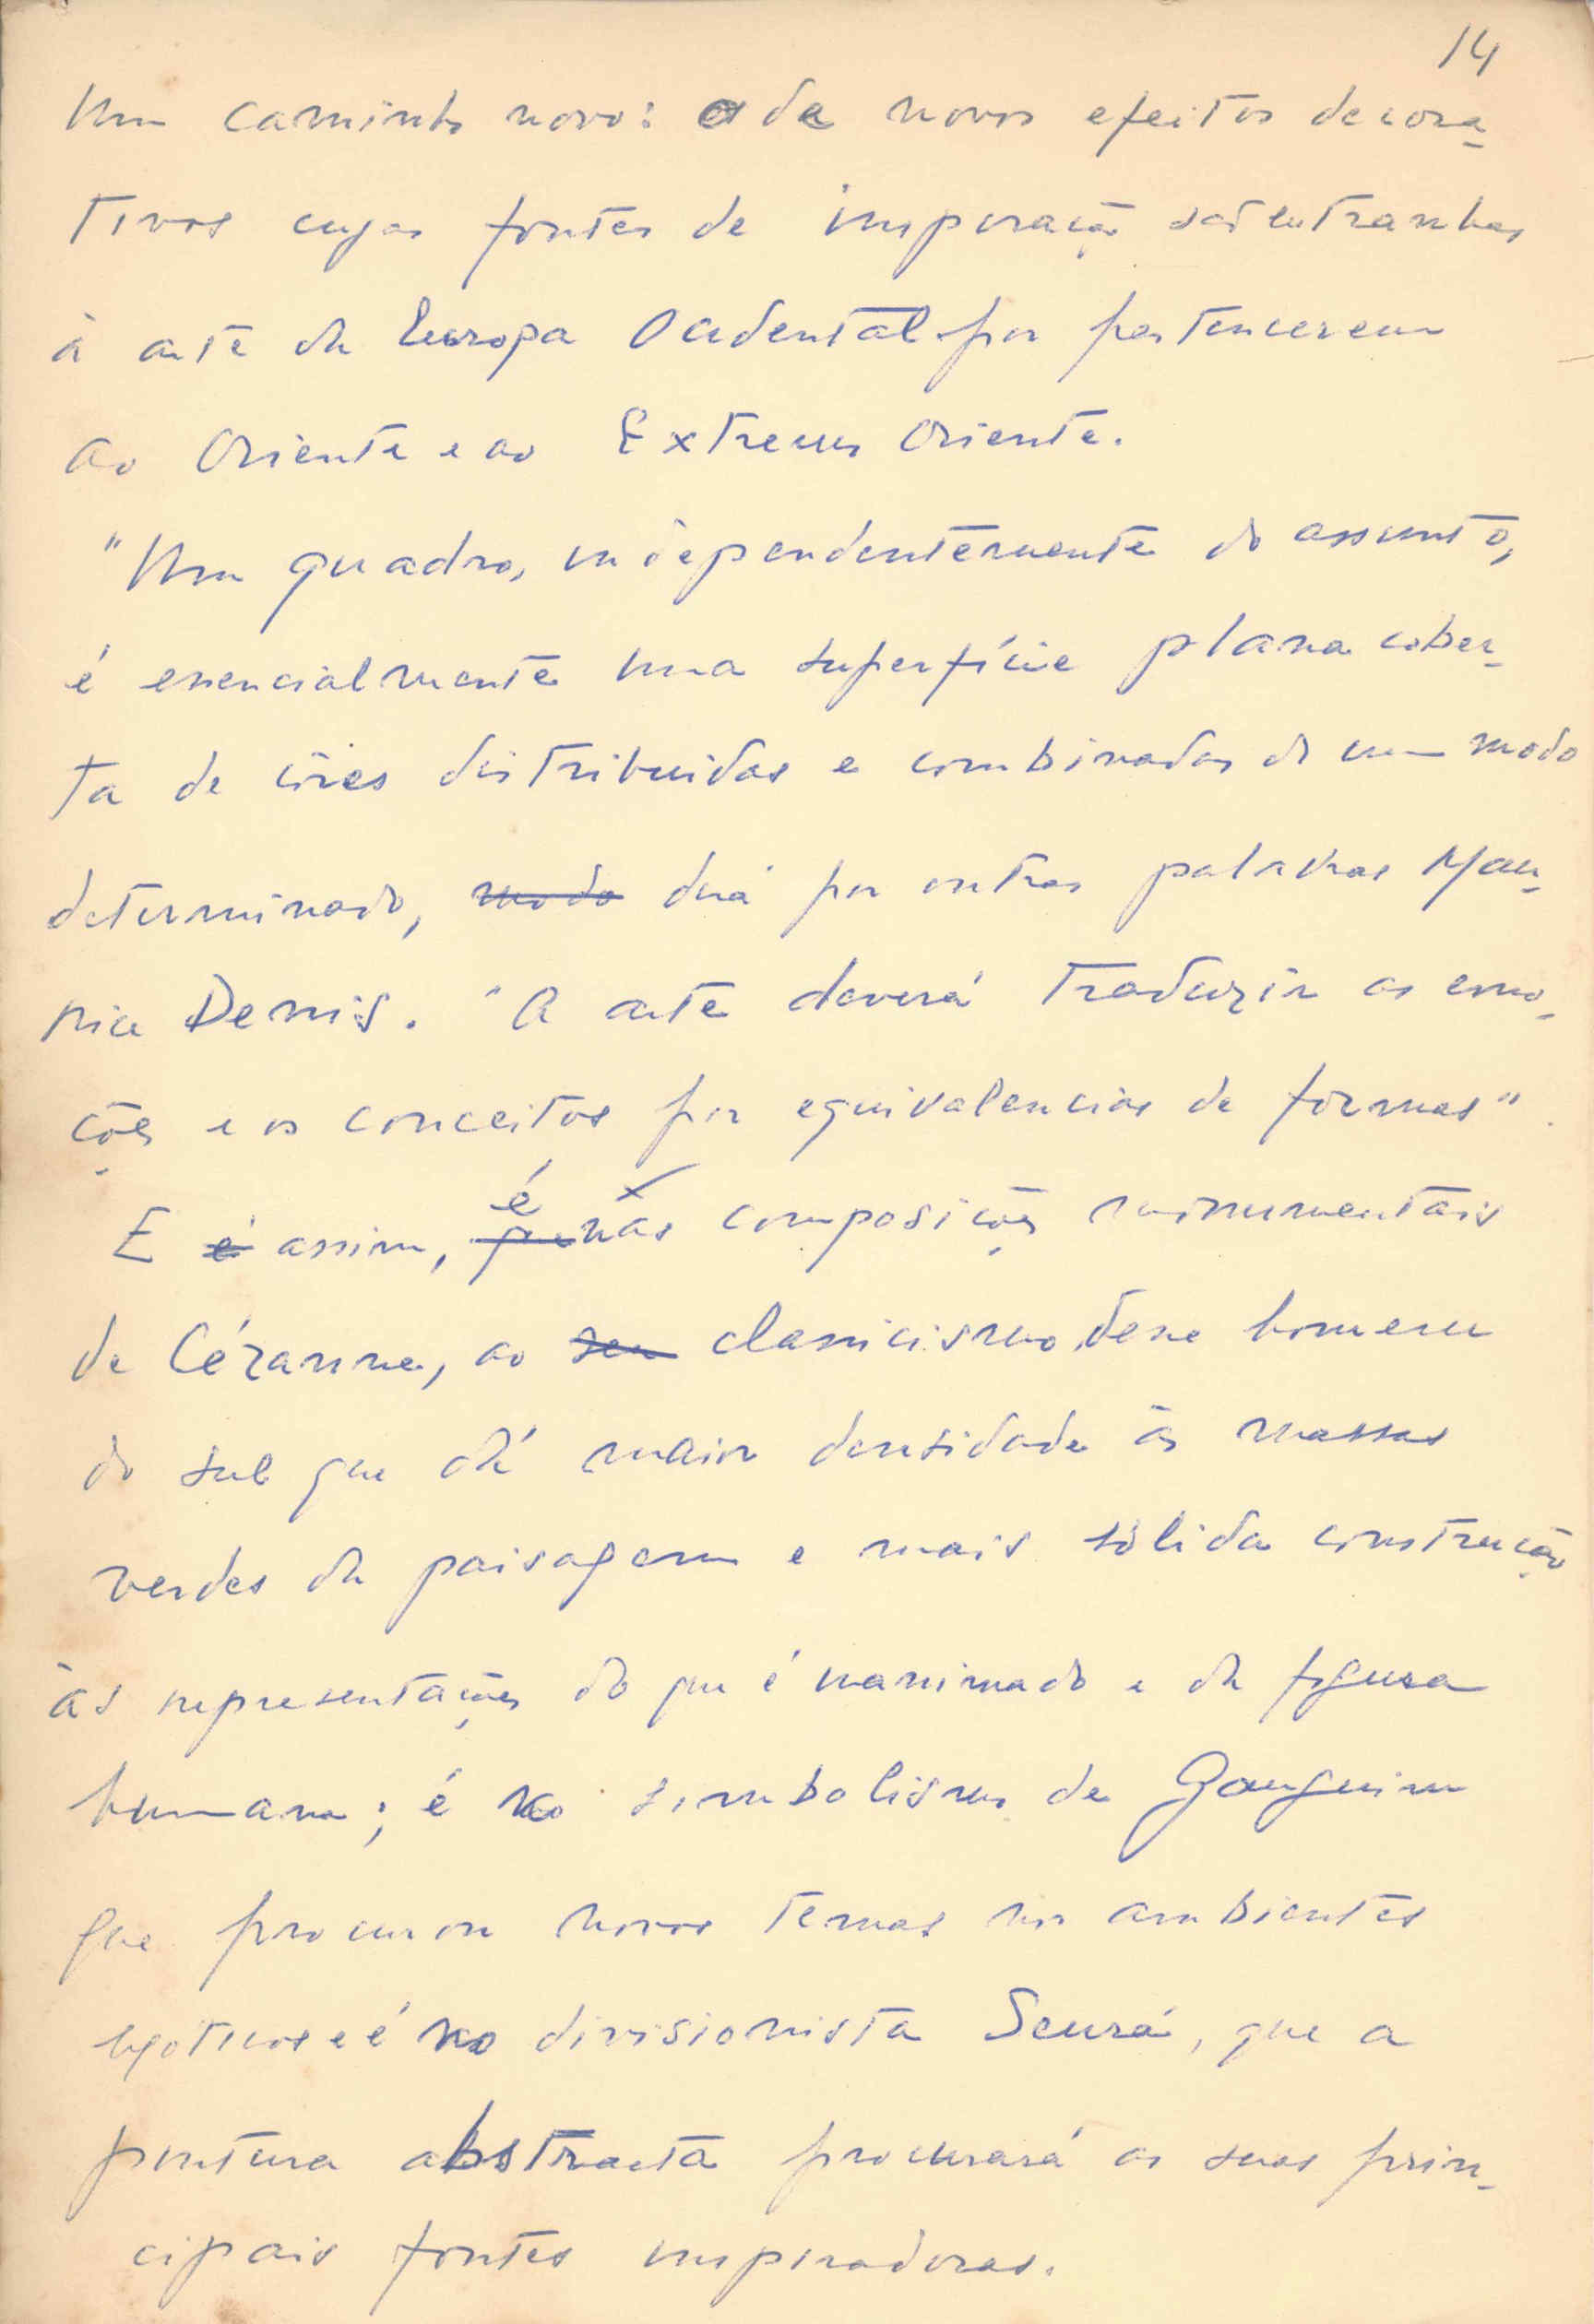 14
Um caminho novo: o de novos efeitos decora-
tivos cujas fontes de inspiração são extranhas
à arte da Europa Ocidental por pertencerem
ao Oriente e ao Extremo Oriente.
"Um quadro, independentemente do assunto,
é essencialmente uma superfície plana cober-
ta de côres distribuidas e combinadas de um modo
determinado, modo dirá por outras palavras Mau-
rice Denis. "A arte deverá traduzir as emo-
ções e os conceitos por equivalencias de formas".
E é assim, que é nas composições monumentais
de Cézanne, ao seu classicismo, desse homem
do sul que dá maior densidade às massas
verdes da paisagem e mais sólida construção
às representações do que é inanimado e da figura
humana; é no simbolismo de Gauguim
que procurou novos temas nos ambientes
exóticos e é no divisionista Seurá, que a
pintura abstracta procurará as suas prin-
cipais fontes inspiradoras.